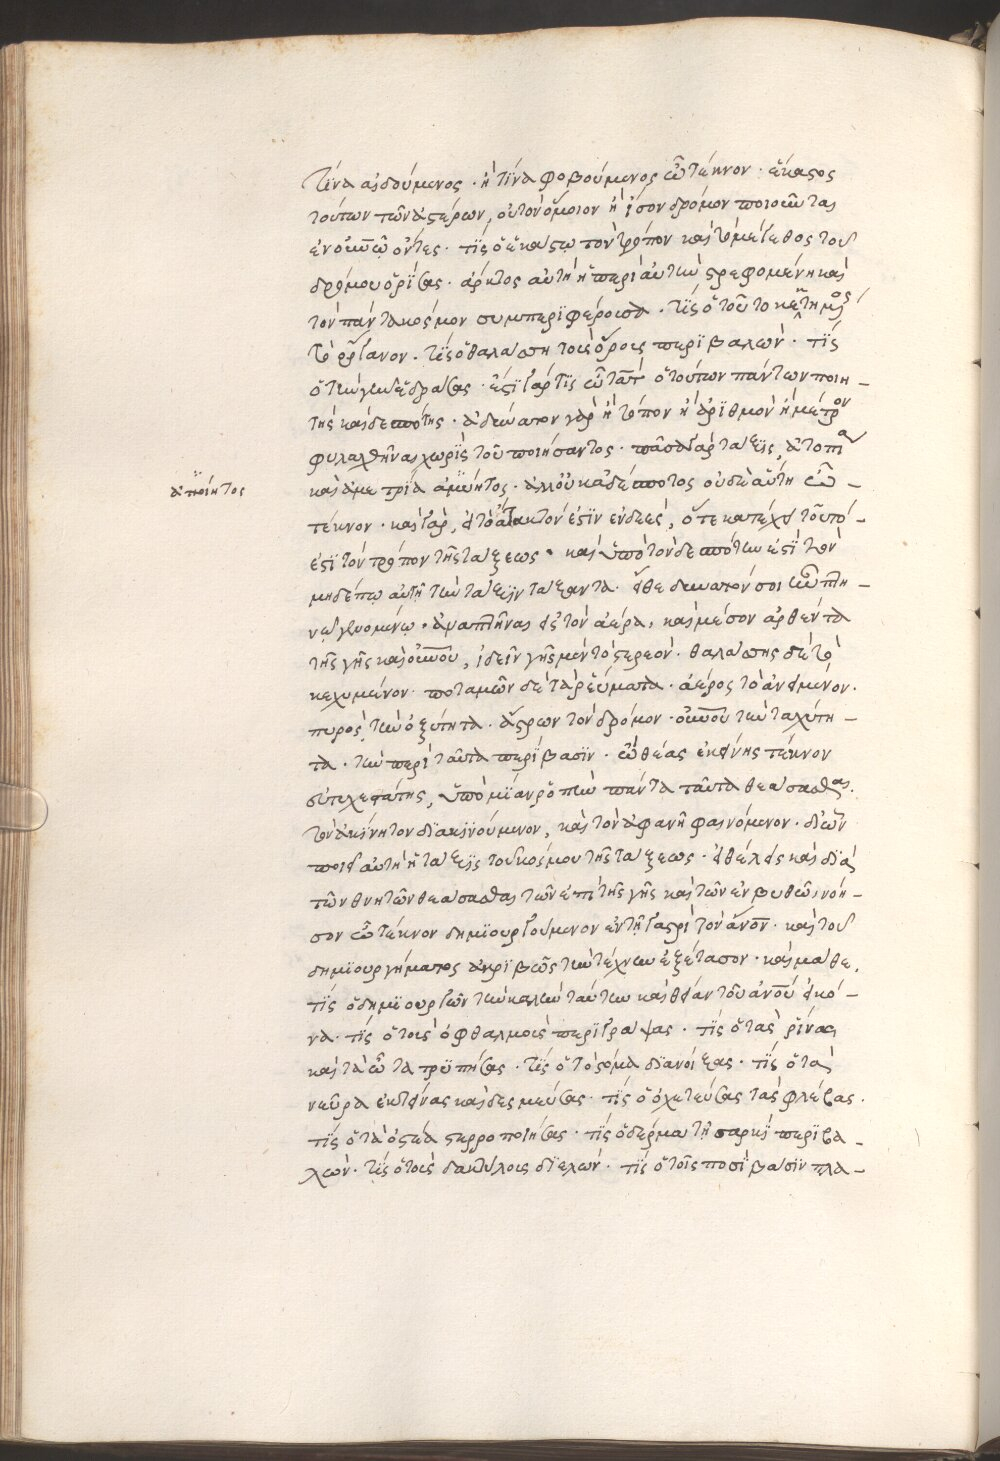 τίνα αἰδούμενος · ἢ τίνα φοβούμενος ὦ τέκνον · ἕκαστος
τούτων τῶν ἀστέρων, οὐ τὸν ὅμοιον ἢ ἴσον δρόμον ποιοῦνται
ἐν οὐνῷ ὄντες · τίς ὁ ἑκάστῳ τὸν τρόπον καὶ τὸ μέγεθος τοῦ
δρόμου ὁρίσας · ἄρκτος αὐτὴ ἡ περὶ αὑτὴν στρεφομένη καὶ
τὸν πάντα κόσμον συμπεριφέρουσα · τίς ὁ τοῦτο κεκτημένος
τὸ ὄργανον · τίς ὁ θαλάσσῃ τοὺς ὅρους περιβαλών · τίς
ὁ τὴν γῆν ἑδράσας · ἔστι γάρ τις ὦ τὰτ ὁ τούτων πάντων ποιη-
τὴς καὶ δεσπότης · ἀδύνατον γὰρ ἢ τόπον ἢ ἀριθμὸν ἢ μέτρον
φυλαχθῆναι χωρὶς τοῦ ποιήσαντος · πᾶσα γὰρ τάξις, ἀτοπία
ἀποίητος
καὶ ἀμετρία ἀποίητος · ἀλλ' οὐκ ἀδέσποτος οὐδὲ αὕτη ὦ-
τέκνον · καὶ γὰρ, εἰ τὸ ἄτακτόν ἐστιν ἐνδεές, ὅτε κατέχει τοῦτό-
ἐστι τὸν τρόπον τῆς τάξεως · καὶ ὑπὸ τὸν δεσπότην ἐστὶ τὸν
μηδέπω αὐτῇ τὴν τάξιν τάξαντα · εἴθε δυνατόν σοι ἦν πτη-
νῷ γενομένῳ · ἀναπτῆναι εἰς τὸν ἀέρα, καὶ μέσον ἀρθέντα
τῆς γῆς καὶ οὐνοῦ, ἰδεῖν γῆς μὲν τὸ στερεόν · θαλάσσης δὲ τὸ
κεχυμένον · ποταμῶν δὲ τὰ ῥεύματα · ἀέρος τὸ ἀνειμένον ·
πυρὸς, τὴν ὀξύτητα · ἄστρων τὸν δρόμον · οὐνοῦ τὴν ταχύτη-
τα · τὴν περὶ ταῦτα περίβασιν · ὢ θέας ἐκείνης τέκνον
εὐτυχεστάτης, ὑπὸ μίαν ῥοπὴν πάντα ταῦτα θεάσασθαι ·
τὸν ἀκίνητον διακινούμενον, καὶ τὸν ἀφανῆ φαινόμενον · δι' ὧν
ποιεῖ αὐτὴ ἡ τάξις τοῦ κόσμου τῆς τάξεως · εἰ θέλεις καὶ διὰ
τῶν θνητῶν θεάσασθαι τῶν ἐπὶ τῆς γῆς καὶ τῶν ἐν βυθῷ, νόη-
σον ὦ τέκνον δημιουργούμενον ἐν τῇ γαστρὶ τὸν ἄνον · καὶ τοῦ
δημιουργήματος ἀκριβῶς τὴν τέχνην ἐξέτασον · καὶ μάθε,
τίς ὁ δημιουργῶν τὴν καλὴν ταύτην καὶ θείαν τοῦ ἀνοῦ εἰκό-
να · τίς ὁ τοὺς ὀφθαλμοὺς περιγράψας · τίς ὁ τὰς ῥῖνας
καὶ τὰ ὦτα τρυπήσας · τίς ὁ τὸ στόμα διανοίξας · τίς ὁ τὰ
νεῦρα ἐκτείνας καὶ δεσμεύσας · τίς ὁ ὀχετεύσας τὰς φλέβας ·
τίς ὁ τὰ ὀστέα στερροποιήσας · τίς ὁ δέρμα τῇ σαρκὶ περιβα-
λών · τίς ὁ τοὺς δακτύλους διελών · τίς ὁ τοῖς ποσὶ βάσιν πλα-